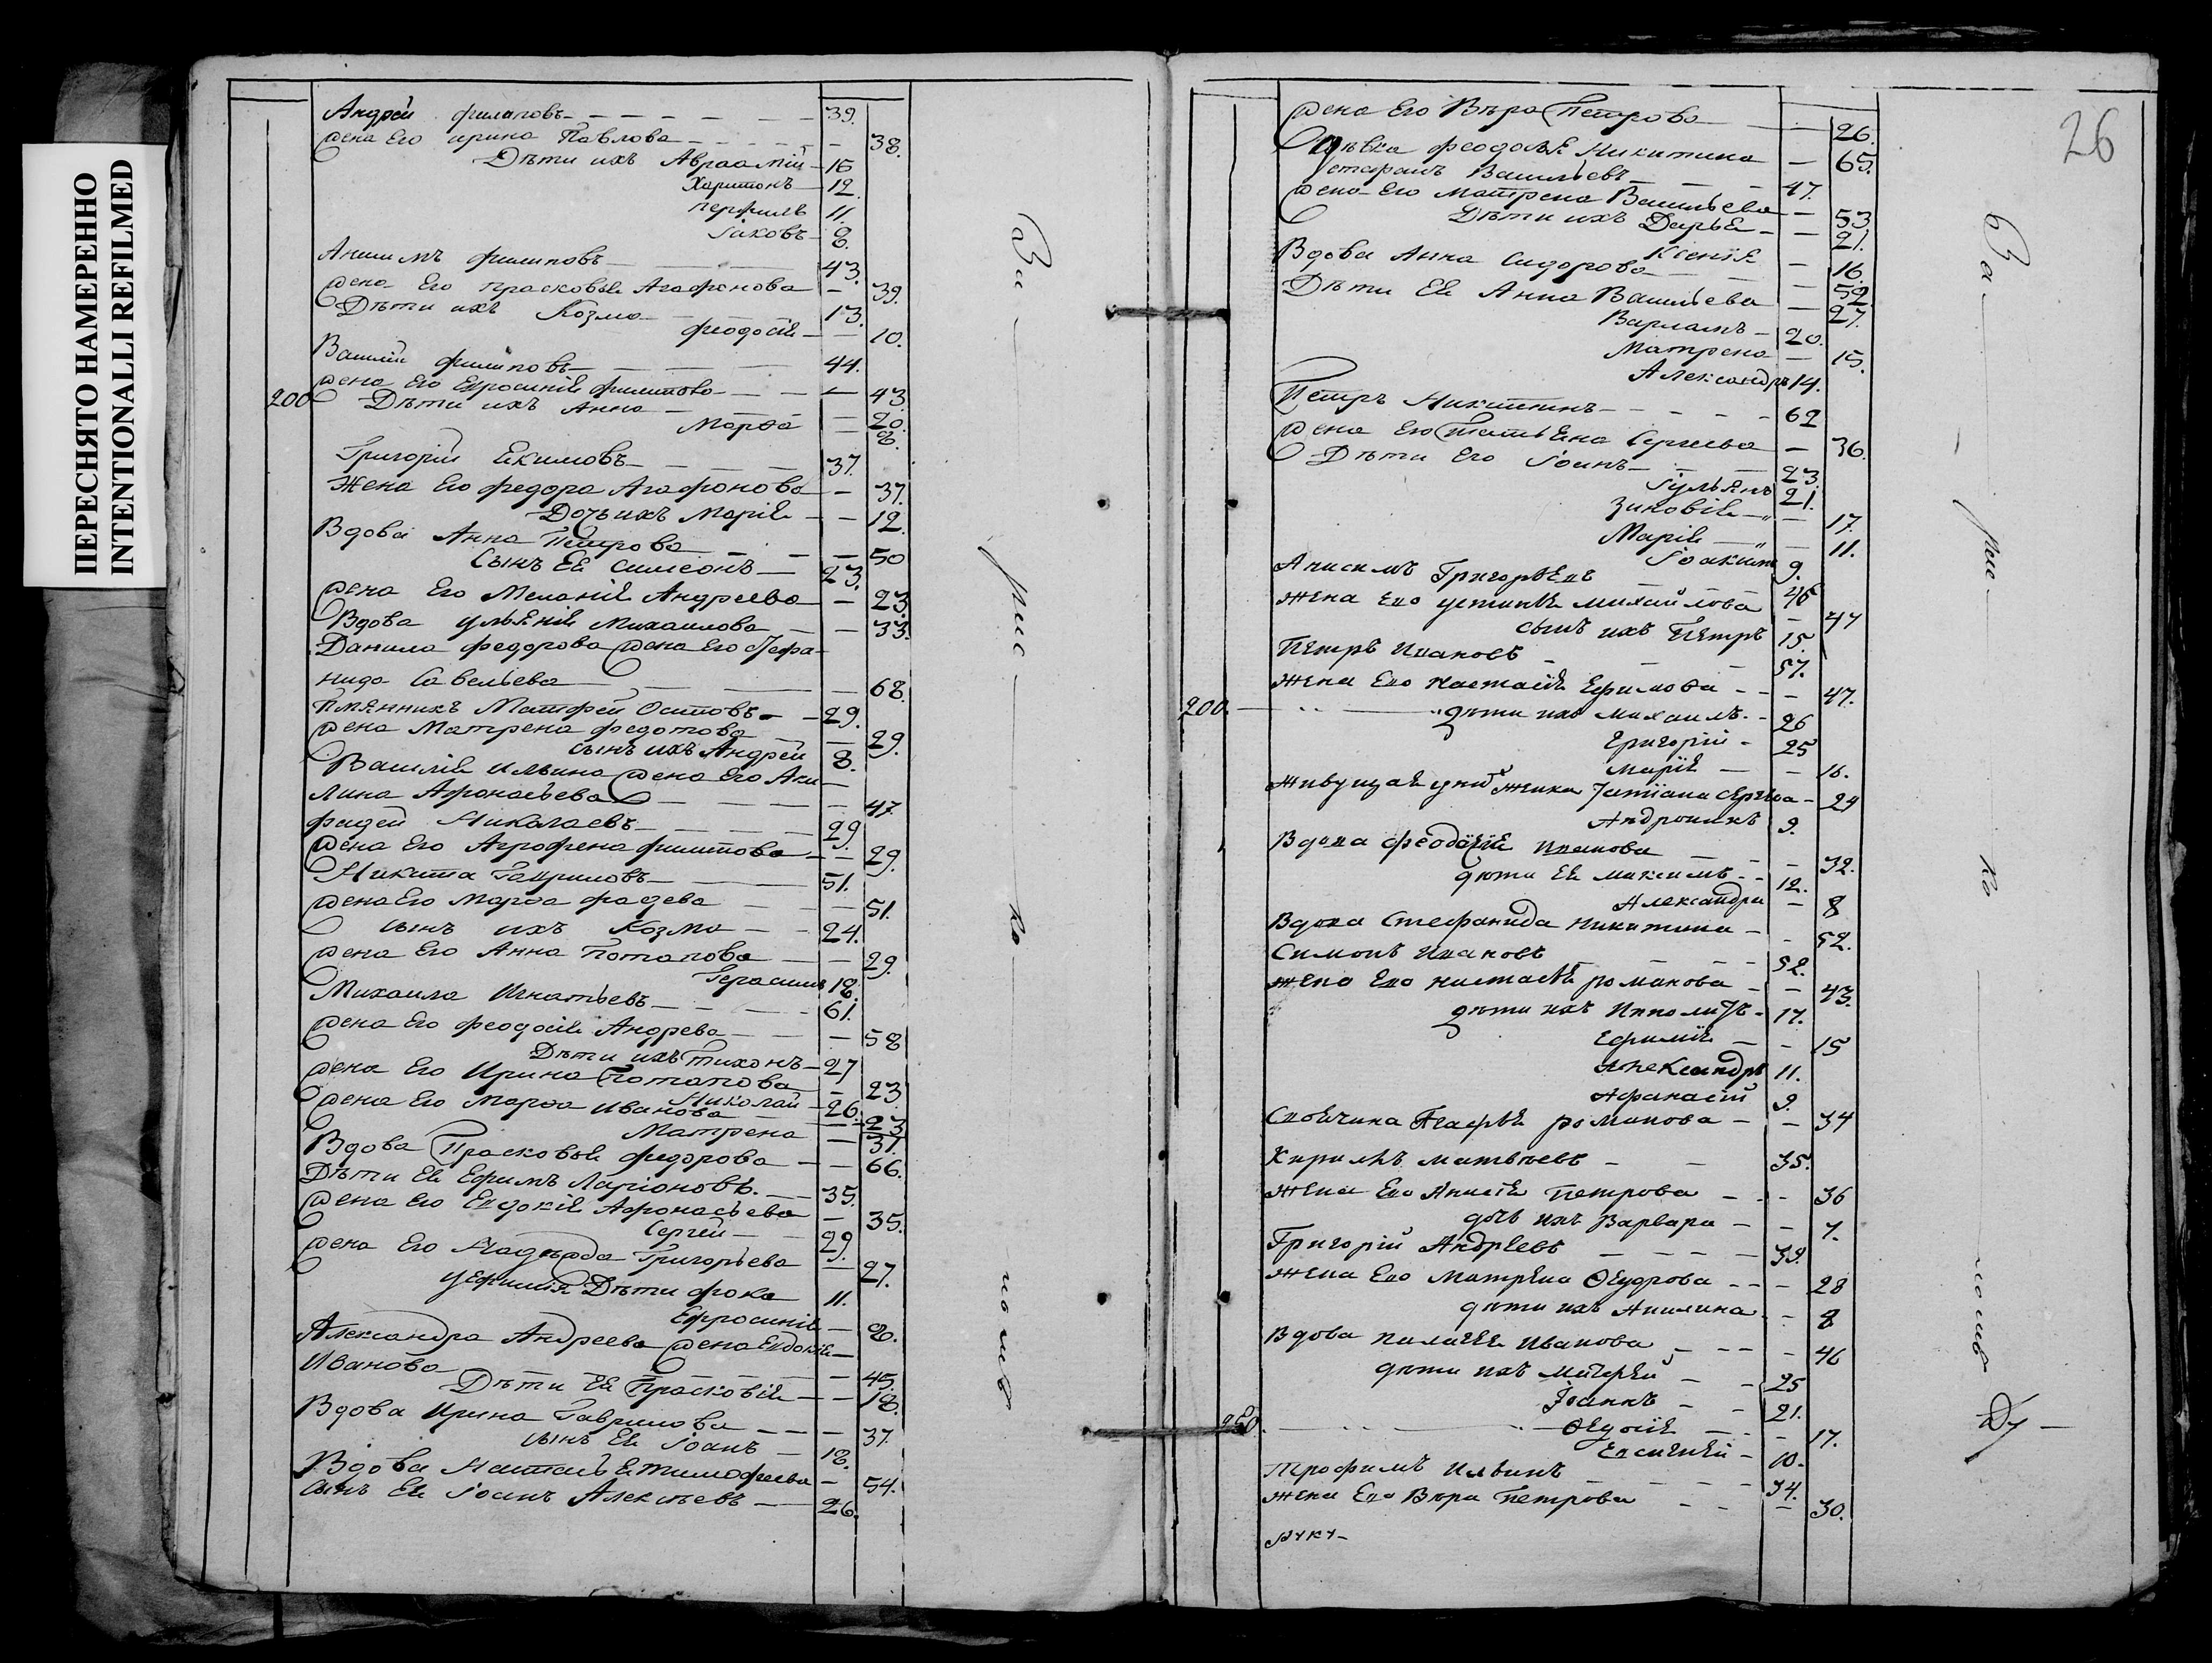 ПЕРЕСНЯТО НАМЕРЕННО
INTENTIONALLI REFILMED
Андрей филиповъ 39.
жена Его ирина Павлова 38.
Дѣти ихъ Авраамий 15
Харитонъ 12.
перфилъ 11.
Iаковъ 8.
Анисимъ филиповъ 43.
жена Его прасковья Агафонова 39.
Дѣти ихъ Козма 13.
феодосия 10.
Василий филиповъ 44.
жена Его Ефросиния филипова 43.
200 Дѣти ихъ Анна 20.
Марѳа 8.
Григорий Екимовъ 37.
Жена Его федора Агафонова 37.
Дочь ихъ Мария 12.
Вдова Анна Петрова 50
Сынъ Ея Симеонъ 23.
жена Его Мелания Андреева 23.
Вдова ульяния Михаилова 33.
Данила федорова жена Его Стефа-
нида Савельева 68.
Матфей 29.
жена Матрена федотова 29.
сынъ ихъ Андрей 8.
Василия Ильина жена Его Аку-
лина Афонасьева 47.
фадей Николаевъ 29.
жена Его Агрофена филипова 29.
Никита Гавриловъ 51.
жена Его Марѳа фадева 51.
сынъ ихъ Козма 24.
жена Его Анна Потапова 29.
Герасимъ 18.
Михаила Игнатьевъ 61.
жена Его феодосия Андрева 58
Дѣти ихъ Тихонъ 27
жена Его Ирина Потапова 23.
Николай 26.
жена Его Марѳа Иванова 23
Матрена 31.
Вдова Прасковья федорова 66.
Дѣти Ея Ефимъ Ларiоновъ 35.
жена Его Евдокия Афонасьева 35.
Сергей 29.
жена Его Надѣжда Григорьева 27.
Дѣти фока 11.
Ефросиния 8.
Александра Андреева жена Евдокия
Иванова 45.
Дѣти Ея Прасковия 18.
Вдова Ирина Гаврилова 37.
сынъ Ея Iоанъ 18.
Вдова Настасья тимофеева 54.
сынъ Ея Iоанъ Алексѣевъ 26.
26
жена Его Вѣра Петрова 26.
Дѣвка феодосья Никитина 65.
Васильевъ 47.
жена Его Матрена Васильева 53.
Дѣти ихъ Дарья 21.
Ксения 16.
Вдова Анна Сидорова 52.
Дѣти Ея Анна Васильева 27.
Варламъ 20.
Матрена 15.
Александръ 14.
Петръ Никитинъ 62
жена Его Татьяна Сергеева 36.
Дѣти Его Iоанъ 23.
Iульянъ 21.
Зиновiя 17.
Марiя 11.
Iоакимъ 9.
Анисимъ Григорьевъ 46
жена Ево устинья михайлова 47
сынъ ихъ Петръ 15.
Петръ Ивановъ 57.
жена Ево настасiя Ефимова 47.
200. дѣти ихъ михаилъ 26
Григорiй 25
марiя 16.
24
Андроникъ 9.
Вдова феодосiя Иванова 32.
дѣти Ея максимъ 12.
Александра 8
Вдова Стефанида никитина 52.
Симонъ Ивановъ 52.
жена Ево настасья романова 43.
дѣти ихъ Ипполитъ 17.
Ефимiя 15
Александръ 11.
Афанасiй 9.
Своячина Агафья романова 34
Кирилъ матвѣевъ 35.
жена Ево Анисiя петрова 36
дочь ихъ Варвара 7.
Григорiй Андреевъ 39.
жена Ево Матрена Ѳеудрова 28
дѣти ихъ Акилина 8
Вдова палагея Иванова 46
дѣти ихъ 25
Iоаннъ 21.
250. 17.
Евсигней 10.
трофимъ Ильинъ 34.
жена Ево Вѣра петрова 30.